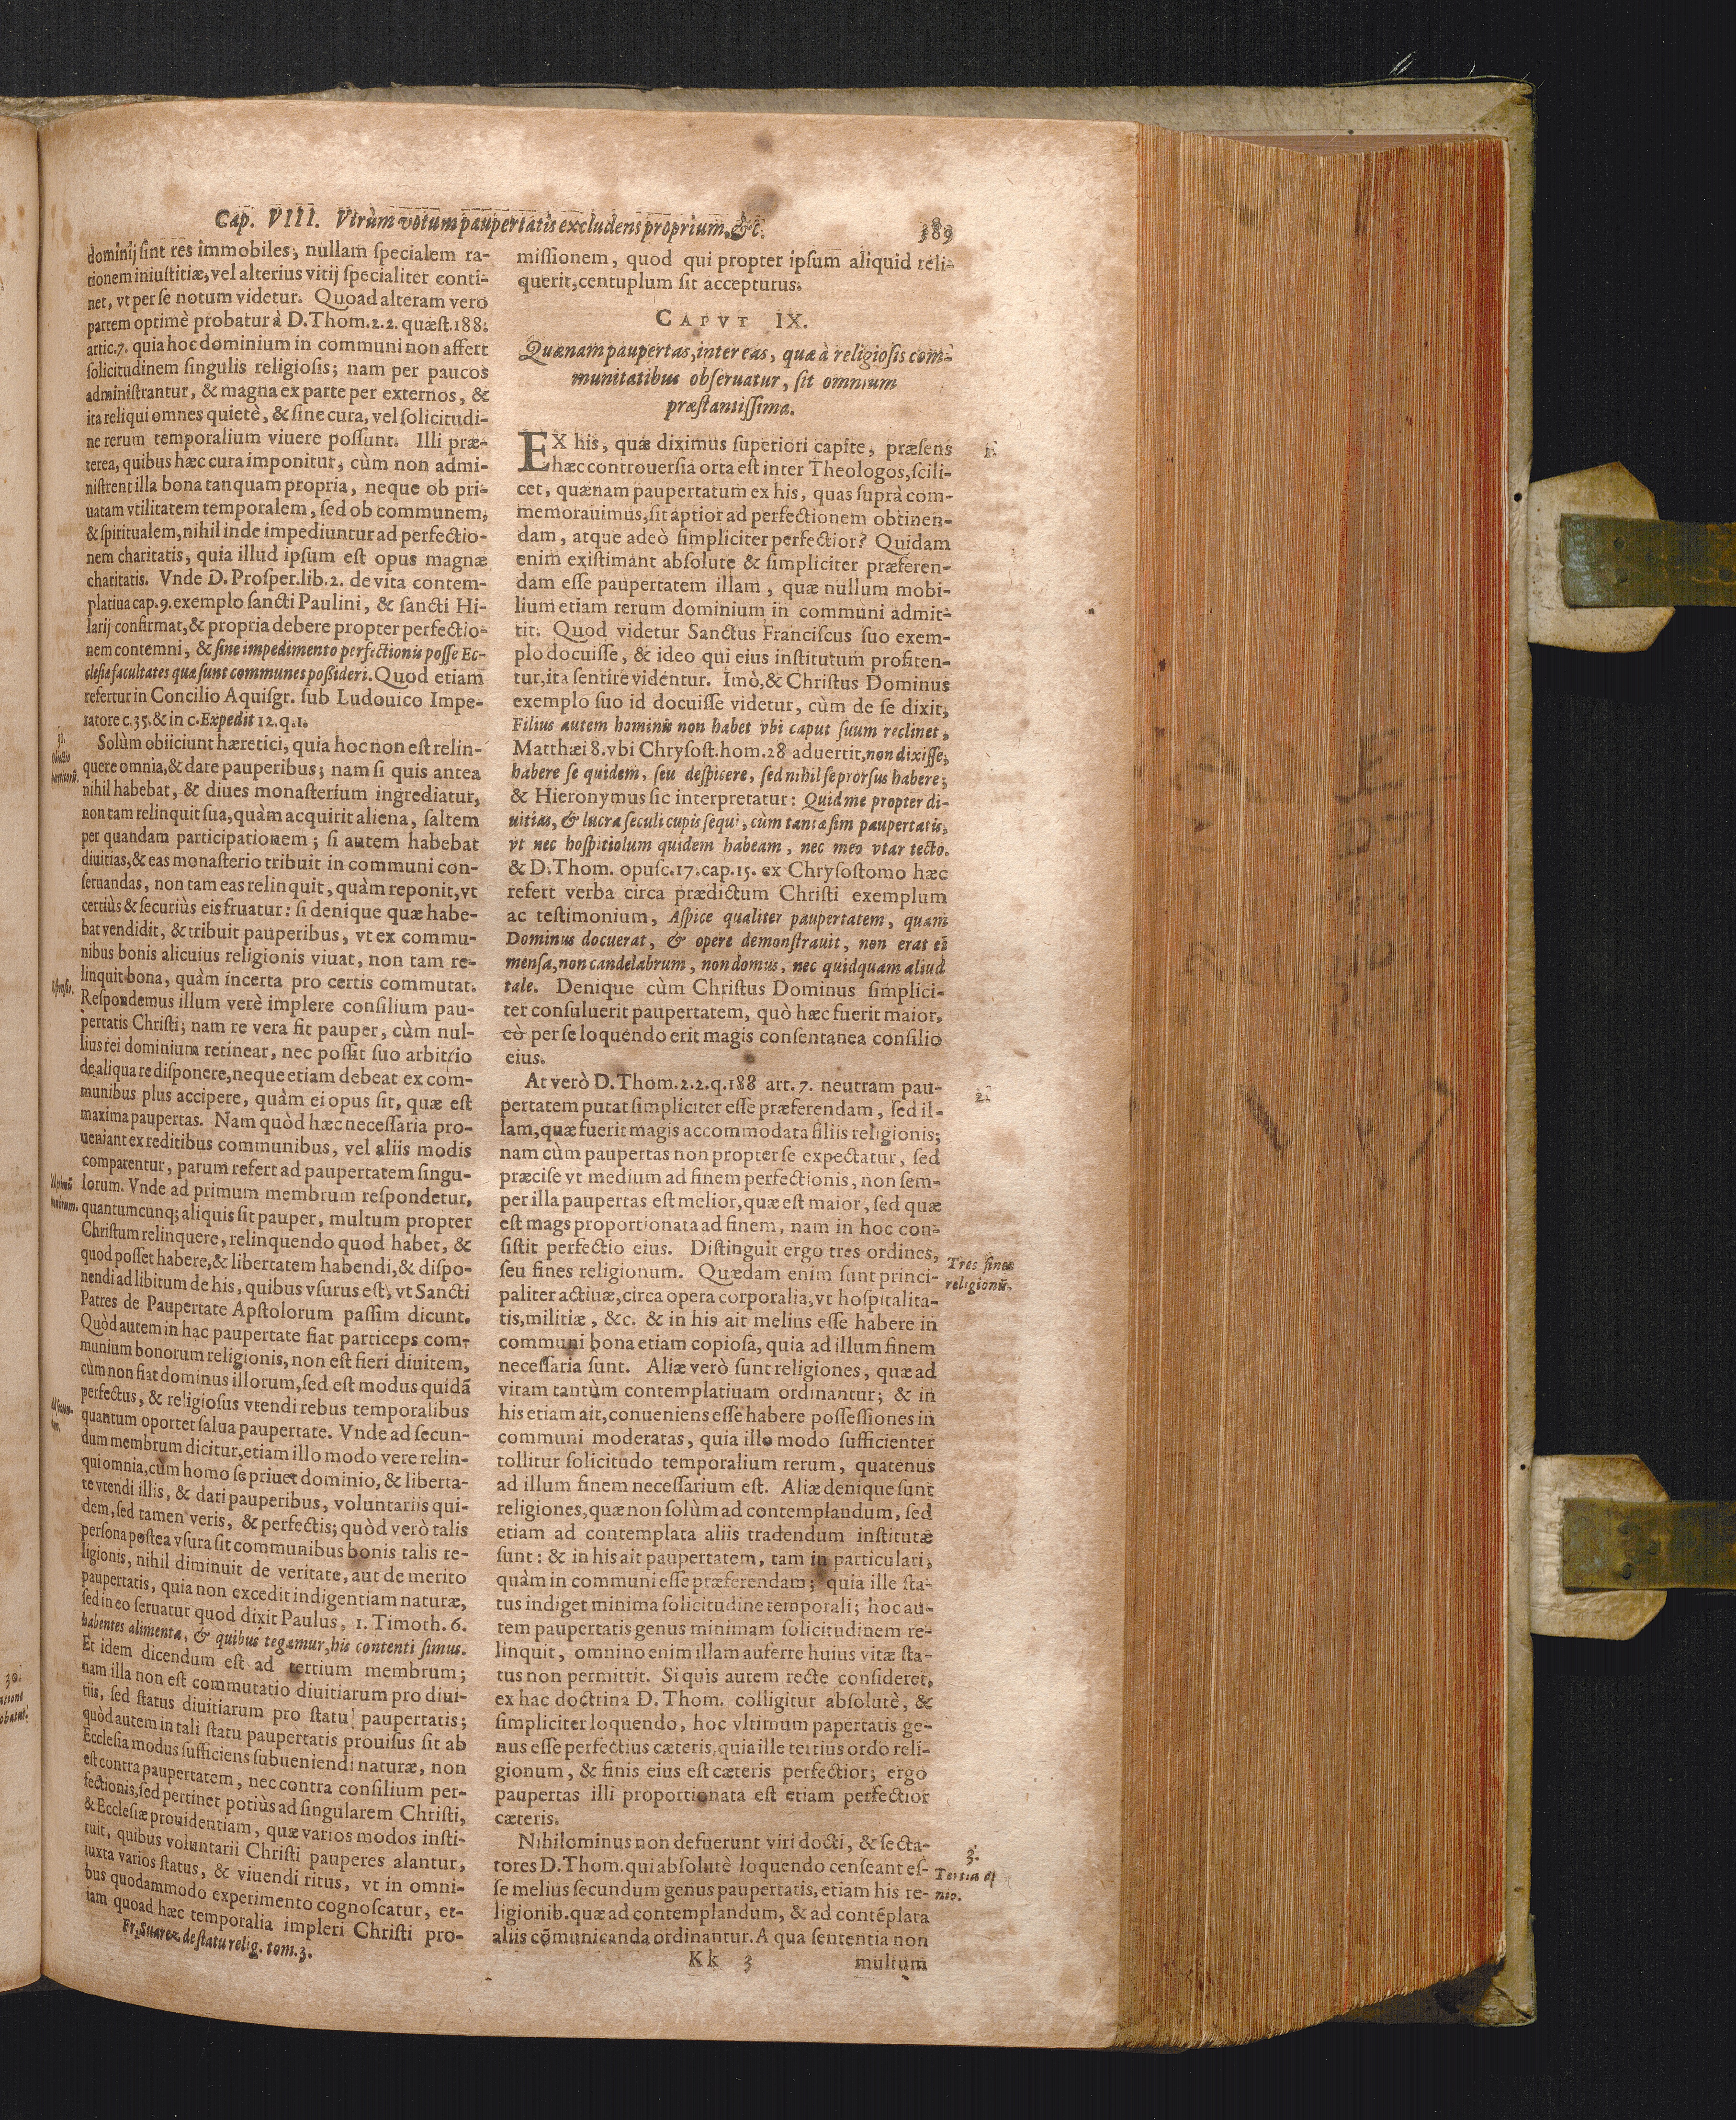 Cap. VIII. Vtrùm votum paupertatis excludens proprium, &c.
389
dominij sint res immobiles, nullam specialem ra-
tionem iniustitiæ, vel alterius vitij specialiter conti-
net, vt per se notum videtur. Quoad alteram vero
partem optimè probatur à D. Thom. 2. 2. quæst. 188.
artic. 7. quia hoc dominium in communi non affert
solicitudinem singulis religiosis; nam per paucos
administrantur, & magna ex parte per externos, &
ita reliqui omnes quietè, & sine cura, vel solicitudi-
ne rerum temporalium viuere possunt. Illi præ-
terea, quibus hæc cura imponitur, cùm non admi-
nistrent illa bona tanquam propria, neque ob pri-
uatam vtilitatem temporalem, sed ob communem,
& spiritualem, nihil inde impediuntur ad perfectio-
nem charitatis, quia illud ipsum est opus magnæ
charitatis. Vnde D. Prosper. lib. 2. de vita contem-
platiua cap. 9. exemplo sancti Paulini, & sancti Hi-
larij confirmat, & propria debere propter perfectio-
nem contemni, & sine impedimento perfectionis posse Ec-
clesiæ facultates quæ sunt communes possideri. Quod etiam
refertur in Concilio Aquisgr. sub Ludouico Impe-
ratore c. 35. & in c. Expedit 12. q. 1.
31.
Obiectio
hæreticorũ.
Solùm obiiciunt hæretici, quia hoc non est relin-
quere omnia, & dare pauperibus; nam si quis antea
nihil habebat, & diues monasterium ingrediatur,
non tam relinquit sua, quàm acquirit aliena, saltem
per quandam participationem; si autem habebat
diuitias, & eas monasterio tribuit in communi con-
seruandas, non tam eas relinquit, quàm reponit, vt
certiùs & securiùs eis fruatur: si denique quæ habe-
bat vendidit, & tribuit pauperibus, vt ex commu-
nibus bonis alicuius religionis viuat, non tam re-
linquit bona, quàm incerta pro certis commutat.
Respondemus illum verè implere consilium pau-
pertatis Christi; nam re vera fit pauper, cùm nul-
lius rei dominium retinear, nec possit suo arbitrio
de aliqua re disponere, neque etiam debeat ex com-
munibus plus accipere, quàm ei opus sit, quæ est
maxima paupertas. Nam quòd hæc necessaria pro-
ueniant ex reditibus communibus, vel aliis modis
comparentur, parum refert ad paupertatem singu-
lorum. Vnde ad primum membrum respondetur,
quantumcunq; aliquis sit pauper, multum propter
Christum relinquere, relinquendo quod habet, &
quod posset habere, & libertatem habendi, & dispo-
nendi ad libitum de his, quibus vsurus est, vt Sancti
Patres de Paupertate Apstolorum passim dicunt.
Quòd autem in hac paupertate fiat particeps com-
munium bonorum religionis, non est fieri diuitem,
cùm non fiat dominus illorum, sed est modus quidã
perfectus, & religiosus vtendi rebus temporalibus
quantum oportet salua paupertate. Vnde ad secun-
dum membrum dicitur, etiam illo modo vere relin-
qui omnia, cùm homo se priuet dominio, & liberta-
te vtendi illis, & dari pauperibus, voluntariis qui-
dem, sed tamen veris, & perfectis; quòd verò talis
persona postea vsura sit communibus bonis talis re-
ligionis, nihil diminuit de veritate, aut de merito
paupertatis, quia non excedit indigentiam naturæ,
sed in eo seruatur quod dixit Paulus, 1. Timoth. 6.
habentes alimenta, & quibus tegamur, his contenti simus.
Et idem dicendum est ad tertium membrum;
nam illa non est commutatio diuitiarum pro diui-
tiis, sed status diuitiarum pro statu paupertatis;
quòd autem in tali statu paupertatis prouisus sit ab
Ecclesia modus sufficiens subueniendi naturæ, non
est contra paupertatem, nec contra consilium per-
fectionis, sed pertinet potiùs ad singularem Christi,
& Ecclesiæ prouidentiam, quæ varios modos insti-
tuit, quibus voluntarii Christi pauperes alantur,
iuxta varios status, & viuendi ritus, vt in omni-
bus quodammodo experimento cognoscatur, et-
iam quoad hæc temporalia impleri Christi pro-
Fr. Suarez de statu relig. tom. 3.
missionem, quod qui propter ipsum aliquid reli-
querit, centuplum sit accepturus.
CAPVT IX.
Quænam paupertas, inter eas, quæ à religiosis com-
munitatibus obseruatur, sit omnium
præstantissima.
EX his, quæ diximus superiori capite, præsens
hæc controuersia orta est inter Theologos, scili-
cet, quænam paupertatum ex his, quas suprà com-
memorauimus, sit aptior ad perfectionem obtinen-
dam, atque adeò simpliciter perfectior? Quidam
enim existimant absolute & simpliciter præferen-
dam esse paupertatem illam, quæ nullum mobi-
lium etiam rerum dominium in communi admit-
tit. Quod videtur Sanctus Franciscus suo exem-
plo docuisse, & ideo qui eius institutum profiten-
tur, ita sentire videntur. Imò, & Christus Dominus
exemplo suo id docuisse videtur, cùm de se dixit,
Filius autem hominis non habet vbi caput suum reclinet,
Matthæi 8. vbi Chrysost. hom. 28 aduertit, non dixisse,
habere se quidem, seu despicere, sed nihil se prorsus habere;
& Hieronymus sic interpretatur: Quid me propter di-
uitias, & lucra seculi cupis sequi, cùm tantæ sim paupertatis,
vt nec hospitiolum quidem habeam, nec meo vtar tecto.
& D. Thom. opusc. 17. cap. 15. ex Chrysostomo hæc
refert verba circa prædictum Christi exemplum
ac testimonium, Aspice qualiter paupertatem, quam
Dominus docuerat, & opere demonstrauit, non erat ei
mensa, non candelabrum, non domus, nec quidquam aliud
tale. Denique cùm Christus Dominus simplici-
ter consuluerit paupertatem, quò hæc fuerit maior,
eò per se loquendo erit magis consentanea consilio
eius.
2.
At verò D. Thom. 2. 2. q. 188 art. 7. neutram pau-
pertatem putat simpliciter esse præferendam, sed il-
lam, quæ fuerit magis accommodata filiis religionis;
nam cùm paupertas non propter se expectatur, sed
præcise vt medium ad finem perfectionis, non sem-
per illa paupertas est melior, quæ est maior, sed quæ
est mags proportionata ad finem, nam in hoc con-
sistit perfectio eius. Distinguit ergo tres ordines,
Tres fines
religionũ.
seu fines religionum. Quædam enim sunt princi-
paliter actiuæ, circa opera corporalia, vt hospitalita-
tis, militiæ, &c. & in his ait melius esse habere in
communi bona etiam copiosa, quia ad illum finem
necessaria sunt. Aliæ verò sunt religiones, quæ ad
vitam tantùm contemplatiuam ordinantur; & in
his etiam ait, conueniens esse habere possessiones in
communi moderatas, quia illo modo sufficienter
tollitur solicitudo temporalium rerum, quatenus
ad illum finem necessarium est. Aliæ denique sunt
religiones, quæ non solùm ad contemplandum, sed
etiam ad contemplata aliis tradendum institutæ
sunt: & in his ait paupertatem, tam in particulari,
quàm in communi esse præferendam; quia ille sta-
tus indiget minima solicitudine temporali; hoc au-
tem paupertatis genus minimam solicitudinem re-
linquit, omnino enim illam auferre huius vitæ sta-
tus non permittit. Si quis autem recte consideret,
ex hac doctrina D. Thom. colligitur absolutè, &
simpliciter loquendo, hoc vltimum papertatis ge-
nus esse perfectius cæteris, quia ille tertius ordo reli-
gionum, & finis eius est cæteris perfectior; ergo
paupertas illi proportionata est etiam perfectior
cæteris.
3.
Tertia opi
nio.
Nihilominus non defuerunt viri docti, & secta-
tores D. Thom. qui absolutè loquendo censeant es-
se melius secundum genus paupertatis, etiam his re-
ligionib. quæ ad contemplandum, & ad contẽplata
aliis cõmunicanda ordinantur. A qua sententia non
Kk 3
multum